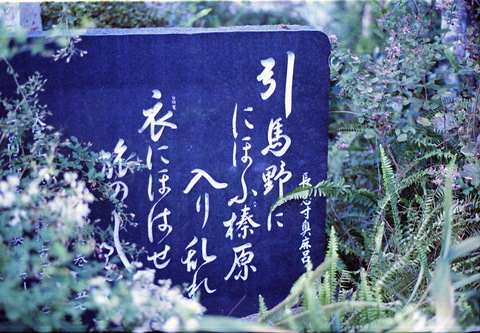 長忌寸奥麻呂
引馬野に
にほふ榛原
入り乱れ
衣にほはせ
旅のし